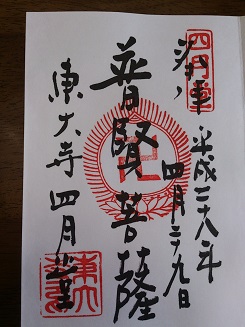 四月堂
奉拝
平成二十八年
四月二十九日
普賢菩薩
卍
東大寺 四月堂